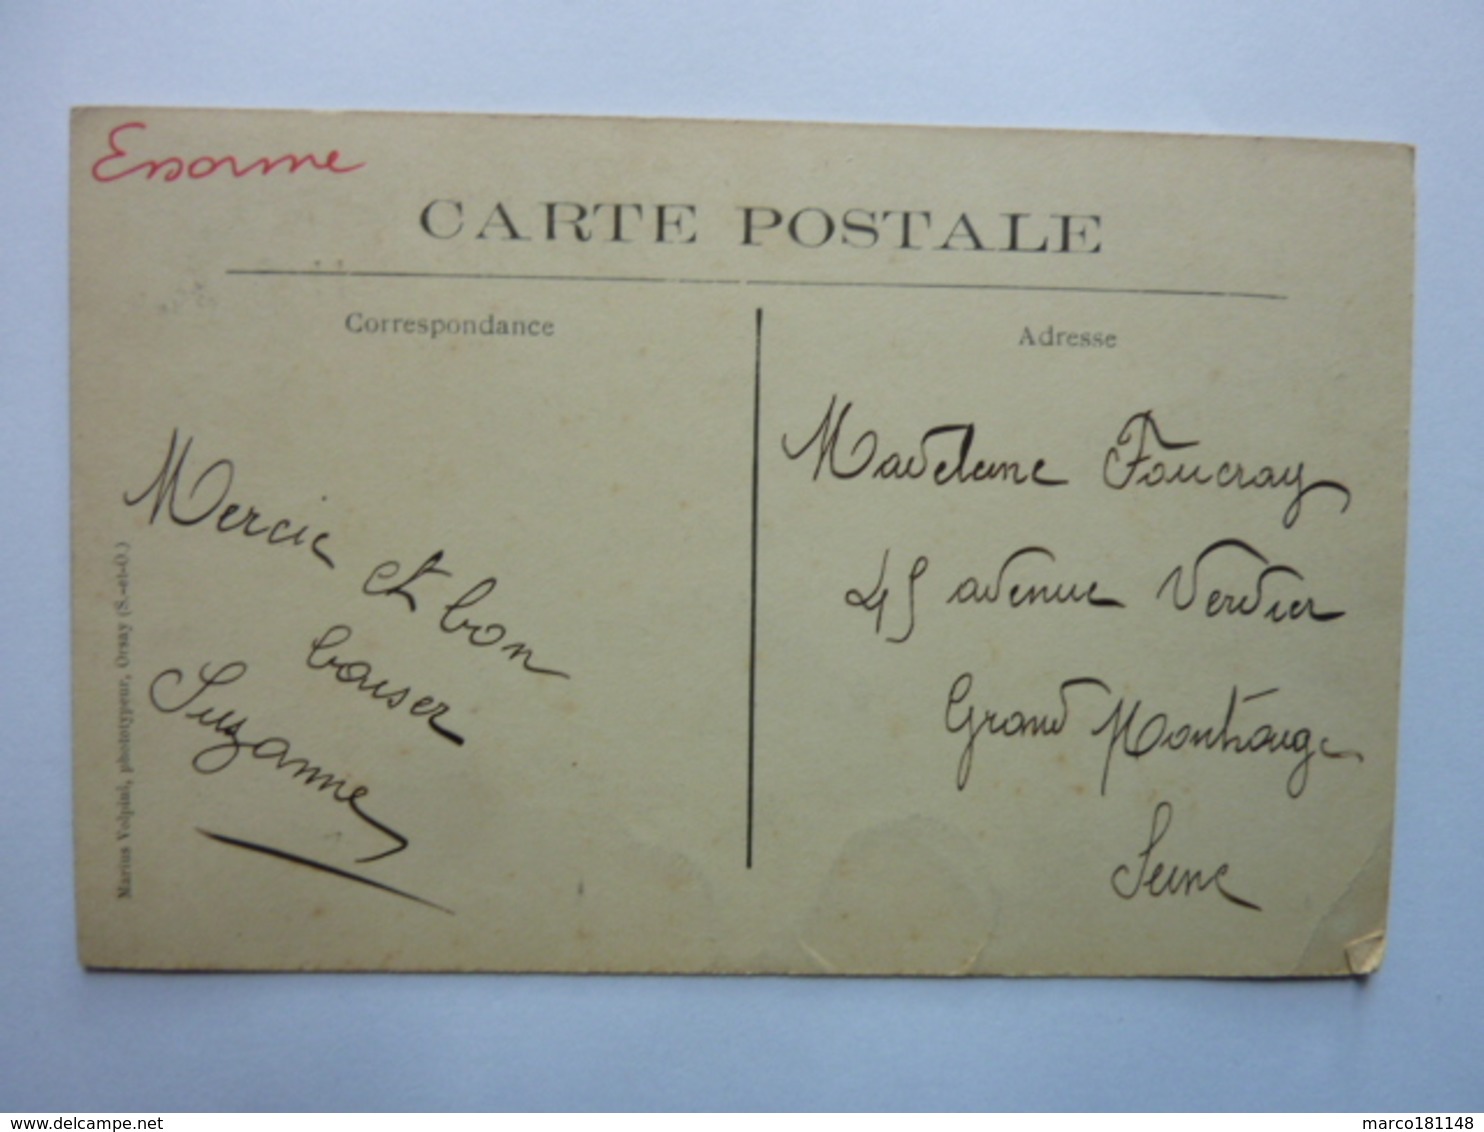 Essonne
CARTE POSTALE
Correspondance
Adresse
Mercie et bon
baiser
Suzanne
Madeleine Foucray
45 avenue Verdier
Grand Montrouge
Seine
Marius Volpini, phototypeur, Orsay (S.-et-O.)
delcampe.net
marco181148